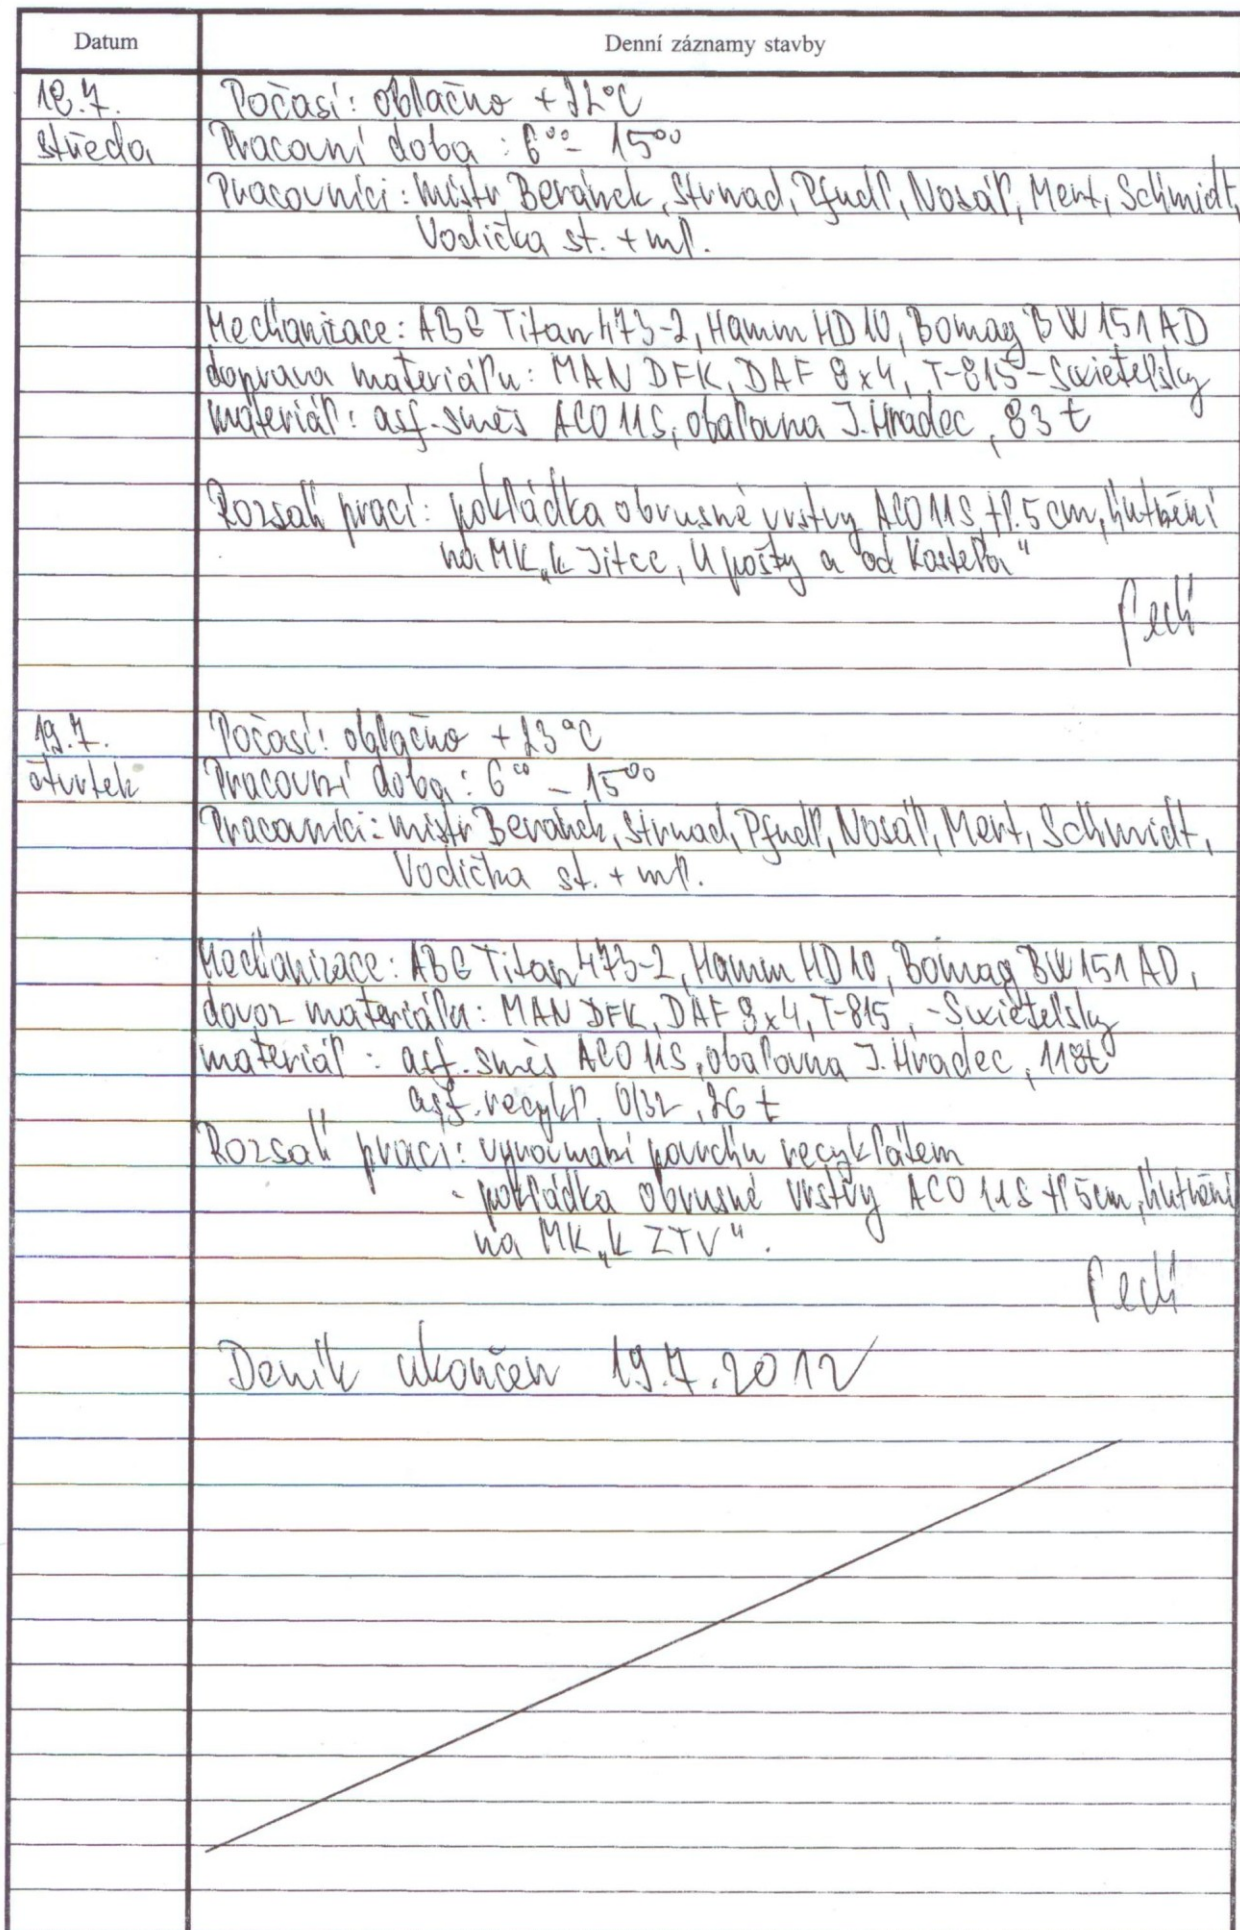 Datum
Denní záznamy stavby
18.7.
Počasí: oblačno +22°C
středa
Pracovní doba: 6⁰⁰ - 15⁰⁰
Pracovníci: mistr Beránek, Strnad, Pfudl, Nosál, Mert, Schmidt,
Vodička st. + ml.
Mechanizace: ABG Titan 473-2, Hamm HD 10, Bomag BW 151 AD
doprava materiálu: MAN DFK, DAF 8x4, T-815 - Swietelsky
materiál: asf. směs ACO 11S, obalovna J. Hradec, 83 t
Rozsah prací: pokládka obrusné vrstvy ACO 11S, tl. 5 cm, hutnění
na MK „k Jitce, U pošty a od Kostela“
19.7.
Počasí: oblačno +23°C
čtvrtek
Pracovní doba: 6⁰⁰ - 15⁰⁰
Pracovníci: mistr Beránek, Strnad, Pfudl, Nosál, Mert, Schmidt,
Vodička st. + ml.
Mechanizace: ABG Titan 473-2, Hamm HD 10, Bomag BW 151 AD,
dovoz materiálu: MAN DFK, DAF 8x4, T-815, - Swietelsky
materiál: asf. směs ACO 11S, obalovna J. Hradec, 118t
asf. recykl. 0/32, 26 t
Rozsah prací: vyrovnání povrchu recyklátem
- pokládka obrusné vrstvy ACO 11S tl 5cm, hutnění
na MK „k ZTV“.
Deník ukončen 19.7.2012